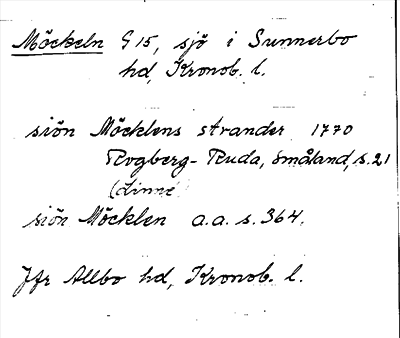 Möckeln G 15, sjö i Sunnerbo
hd, Kronob. l.
siön Möcklens strander 1770
Rogberg-Ruda, Småland, s. 21
(Linné)
siön Möcklen a.a. s. 364.
Jfr Allbo hd, Kronob. l.